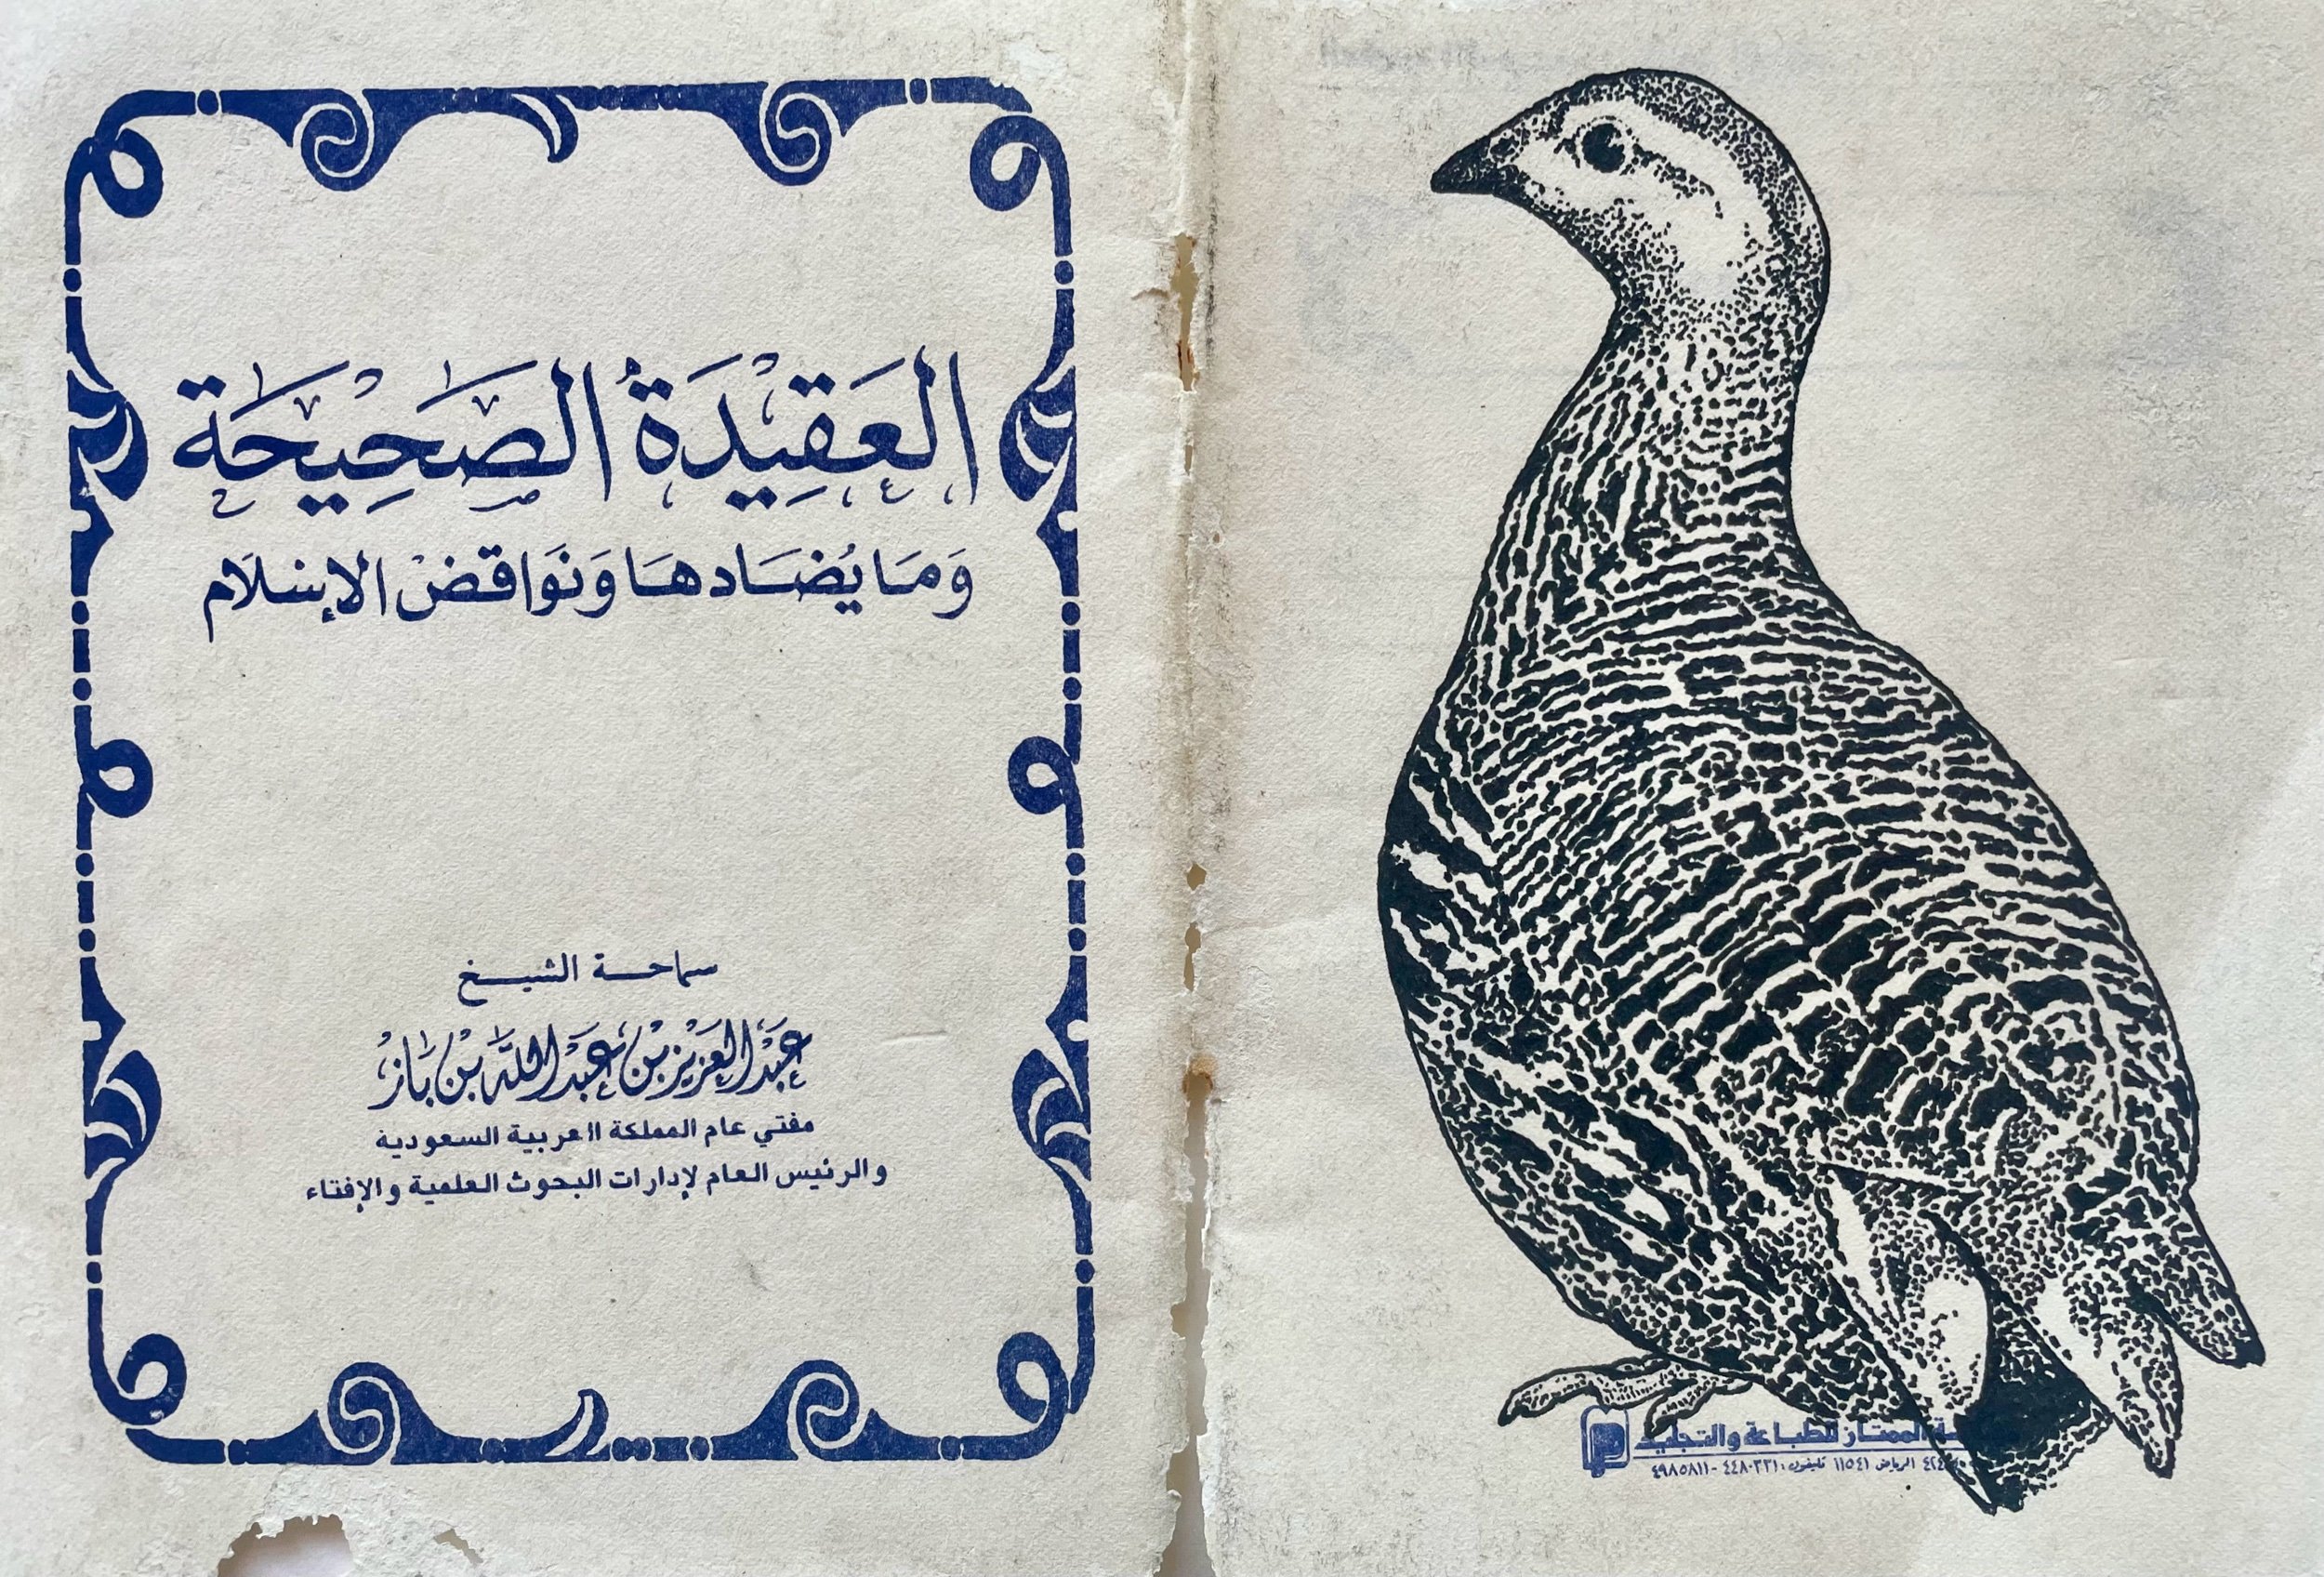 العَقِيْدَةُ الصَّحِيْحَة
وَمَا يُضَادهَا وَنَوَاقضْ الإسْلَام
سماحة الشيخ
عَبْد العَزِيْز بْن عَبْد اللَّه بْن بَازْ
مفتي عام المملكة العربية السعودية
والرئيس العام لإدارات البحوث العلمية والإفتاء
الممتاز للطباعة والتجليد
الرياض ١١٥٤١ تليفون: ٤٤٨٠٢٢١ - ٤٩٨٥٨١١